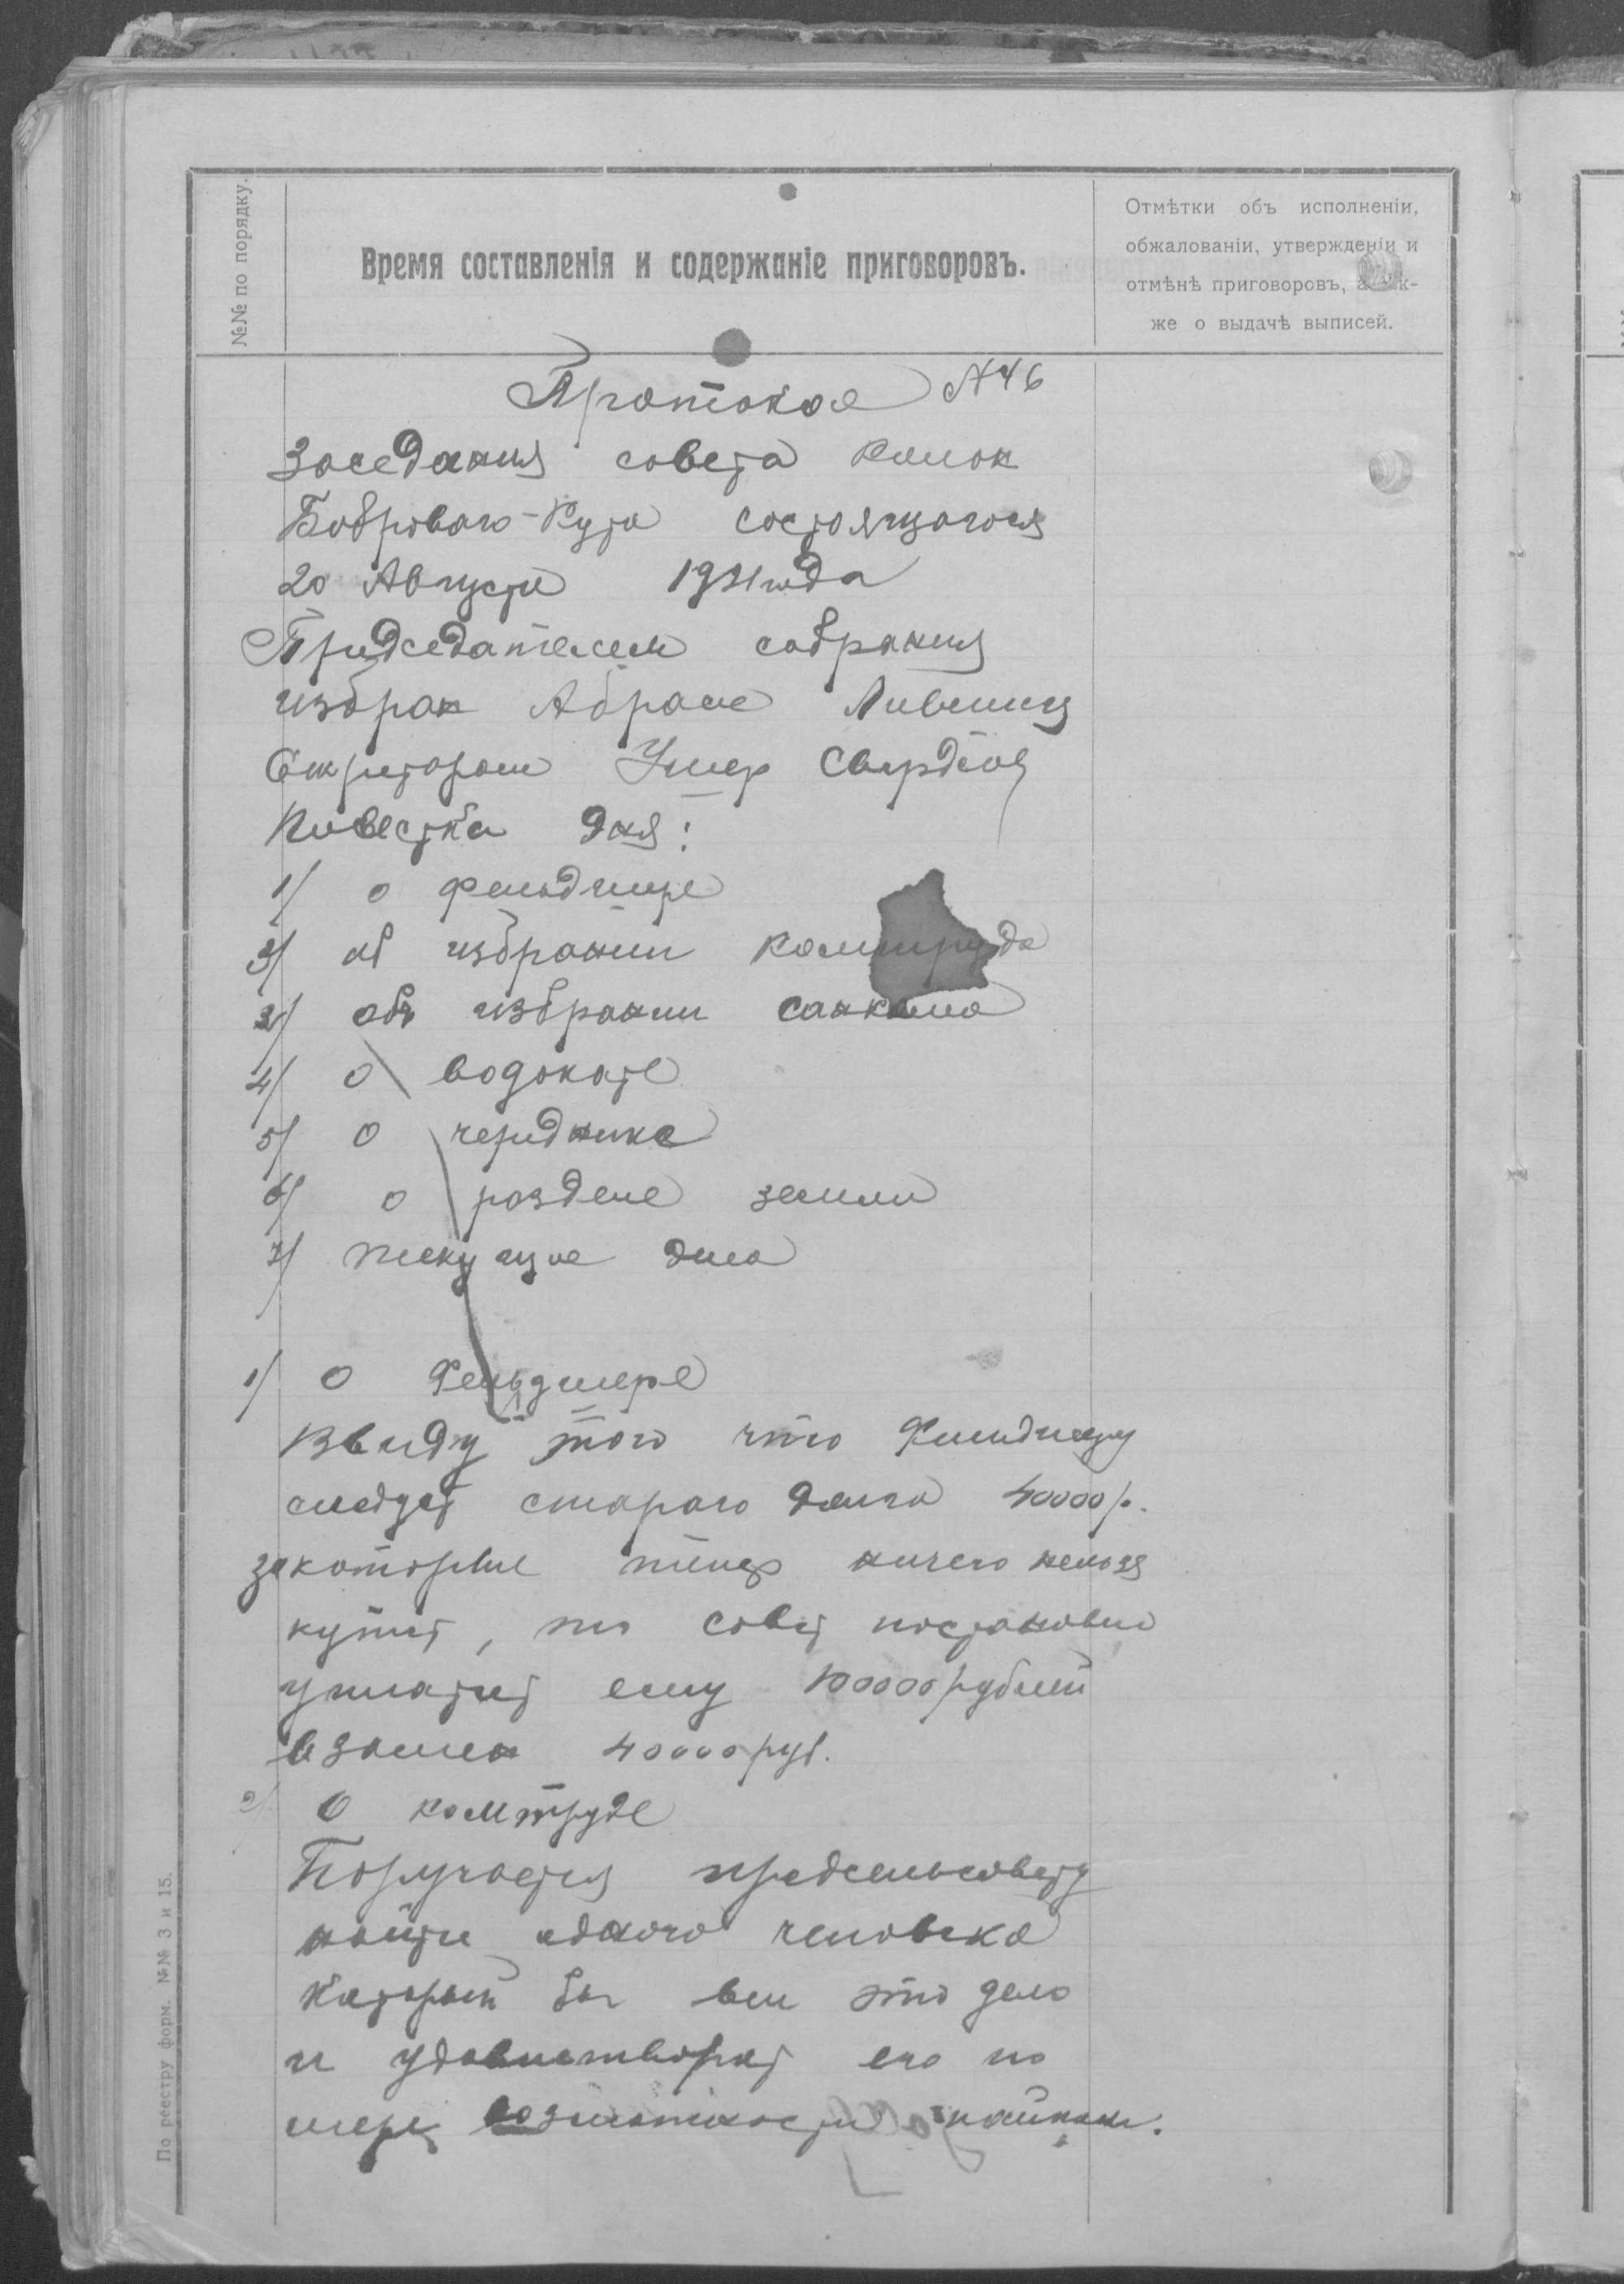 №№ по порядку.
Время составленія и содержаніе приговоровъ.
Отмѣтки объ исполненіи,
обжалованіи, утвержденіи и
отмѣнѣ приговоровъ, а так-
же о выдачѣ выписей.
Протокол №46
Заседания совета колон
Боброваго-Кута состоящагося
20 Августа 1921 года
Председателем собрания
избран Абрам Лившиц
Секретарем Ушер Свердлов
Повестка дня:
1/ о фельдшере
3/ об избрании комтруда
2/ об избрании санкома
4/ о водокате
5/ О череднике
6/ о разделе земли
7/ текущие дела
1/ О Фельдшере
Ввиду того что Фельдшеру
следует стараго долга 40000 р.
за которые теперь ничего нельзя
купить, то совет постановил
уплатить ему 100000 рублей
взамен 40000 руб.
2/ О комтруде
Поручается предсельсовету
найти одного человека
который бы вел это дело
и удовлетворять его по
мере возможности пайком.
По реестру форм. №№ 3 и 15.